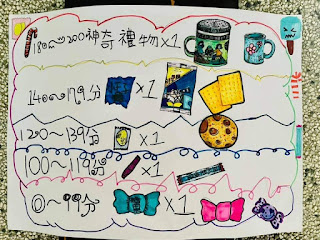 180~200神奇禮物x1
140~179分 x1
120~139分 x1
100~119分 x1
0~99分 x1